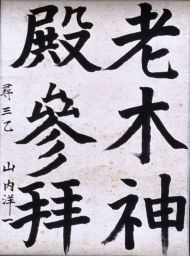 老木神
殿參拜
尋三乙 山内洋一